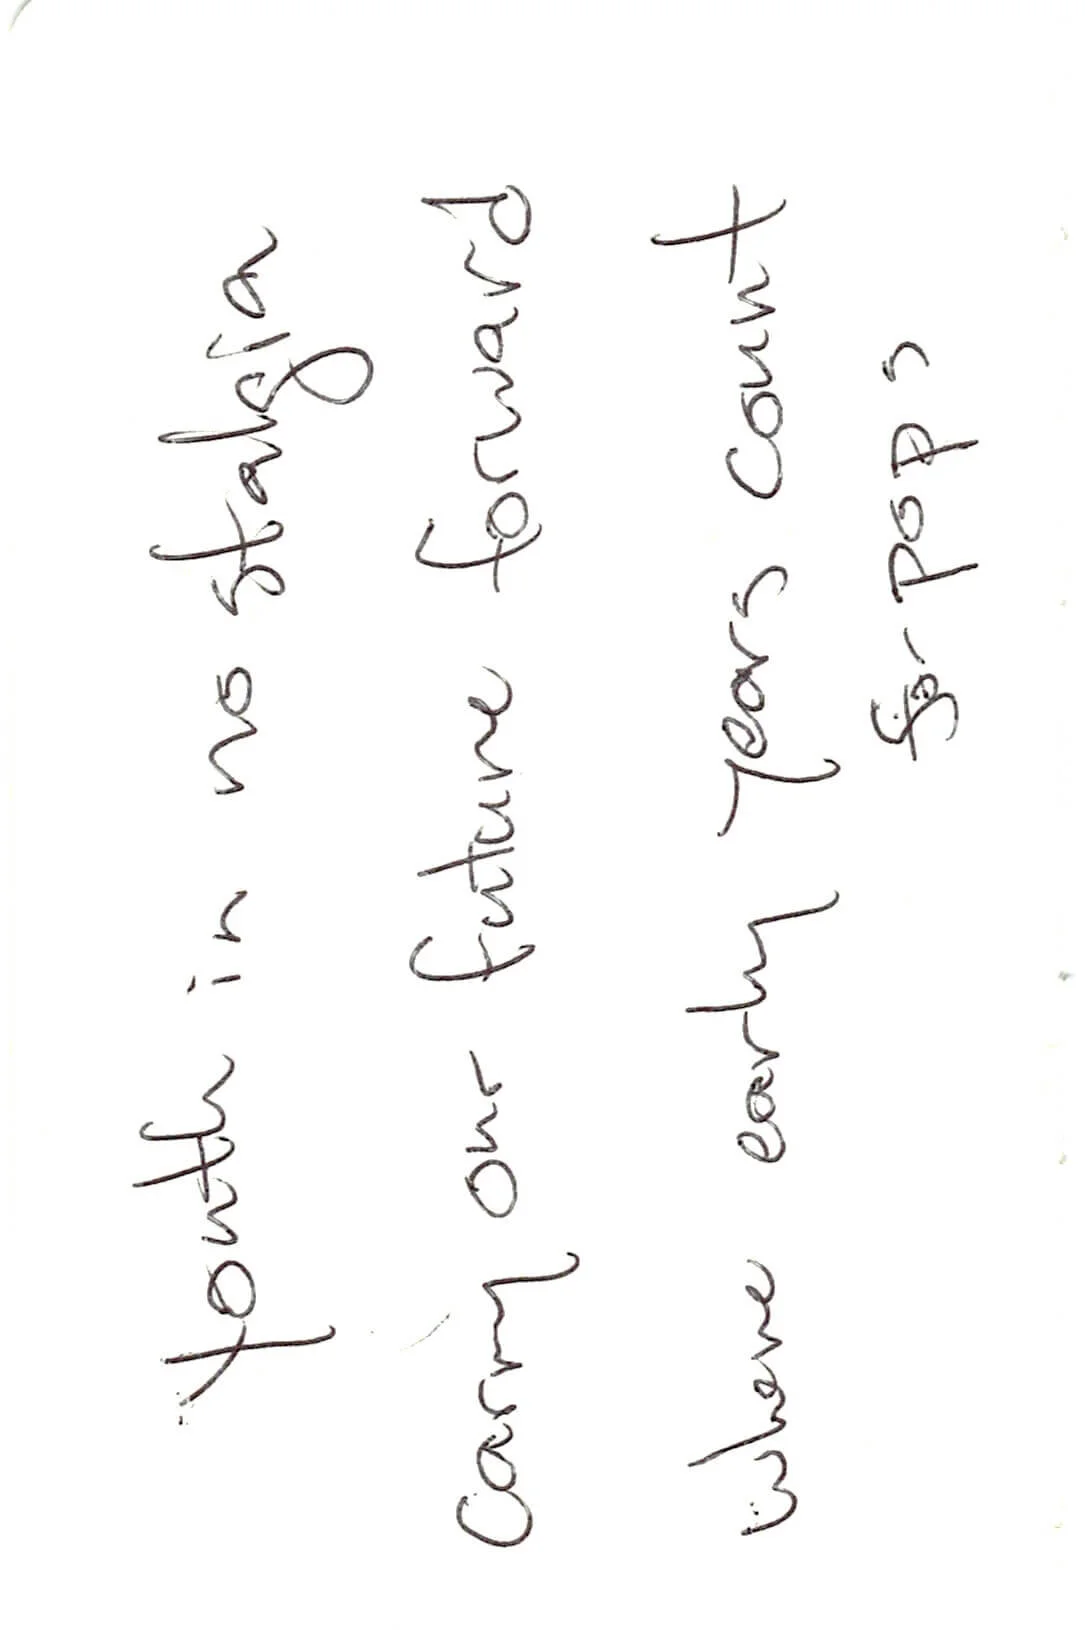 Youth in no stalgia
Carry our future forward
where early years count
for pops